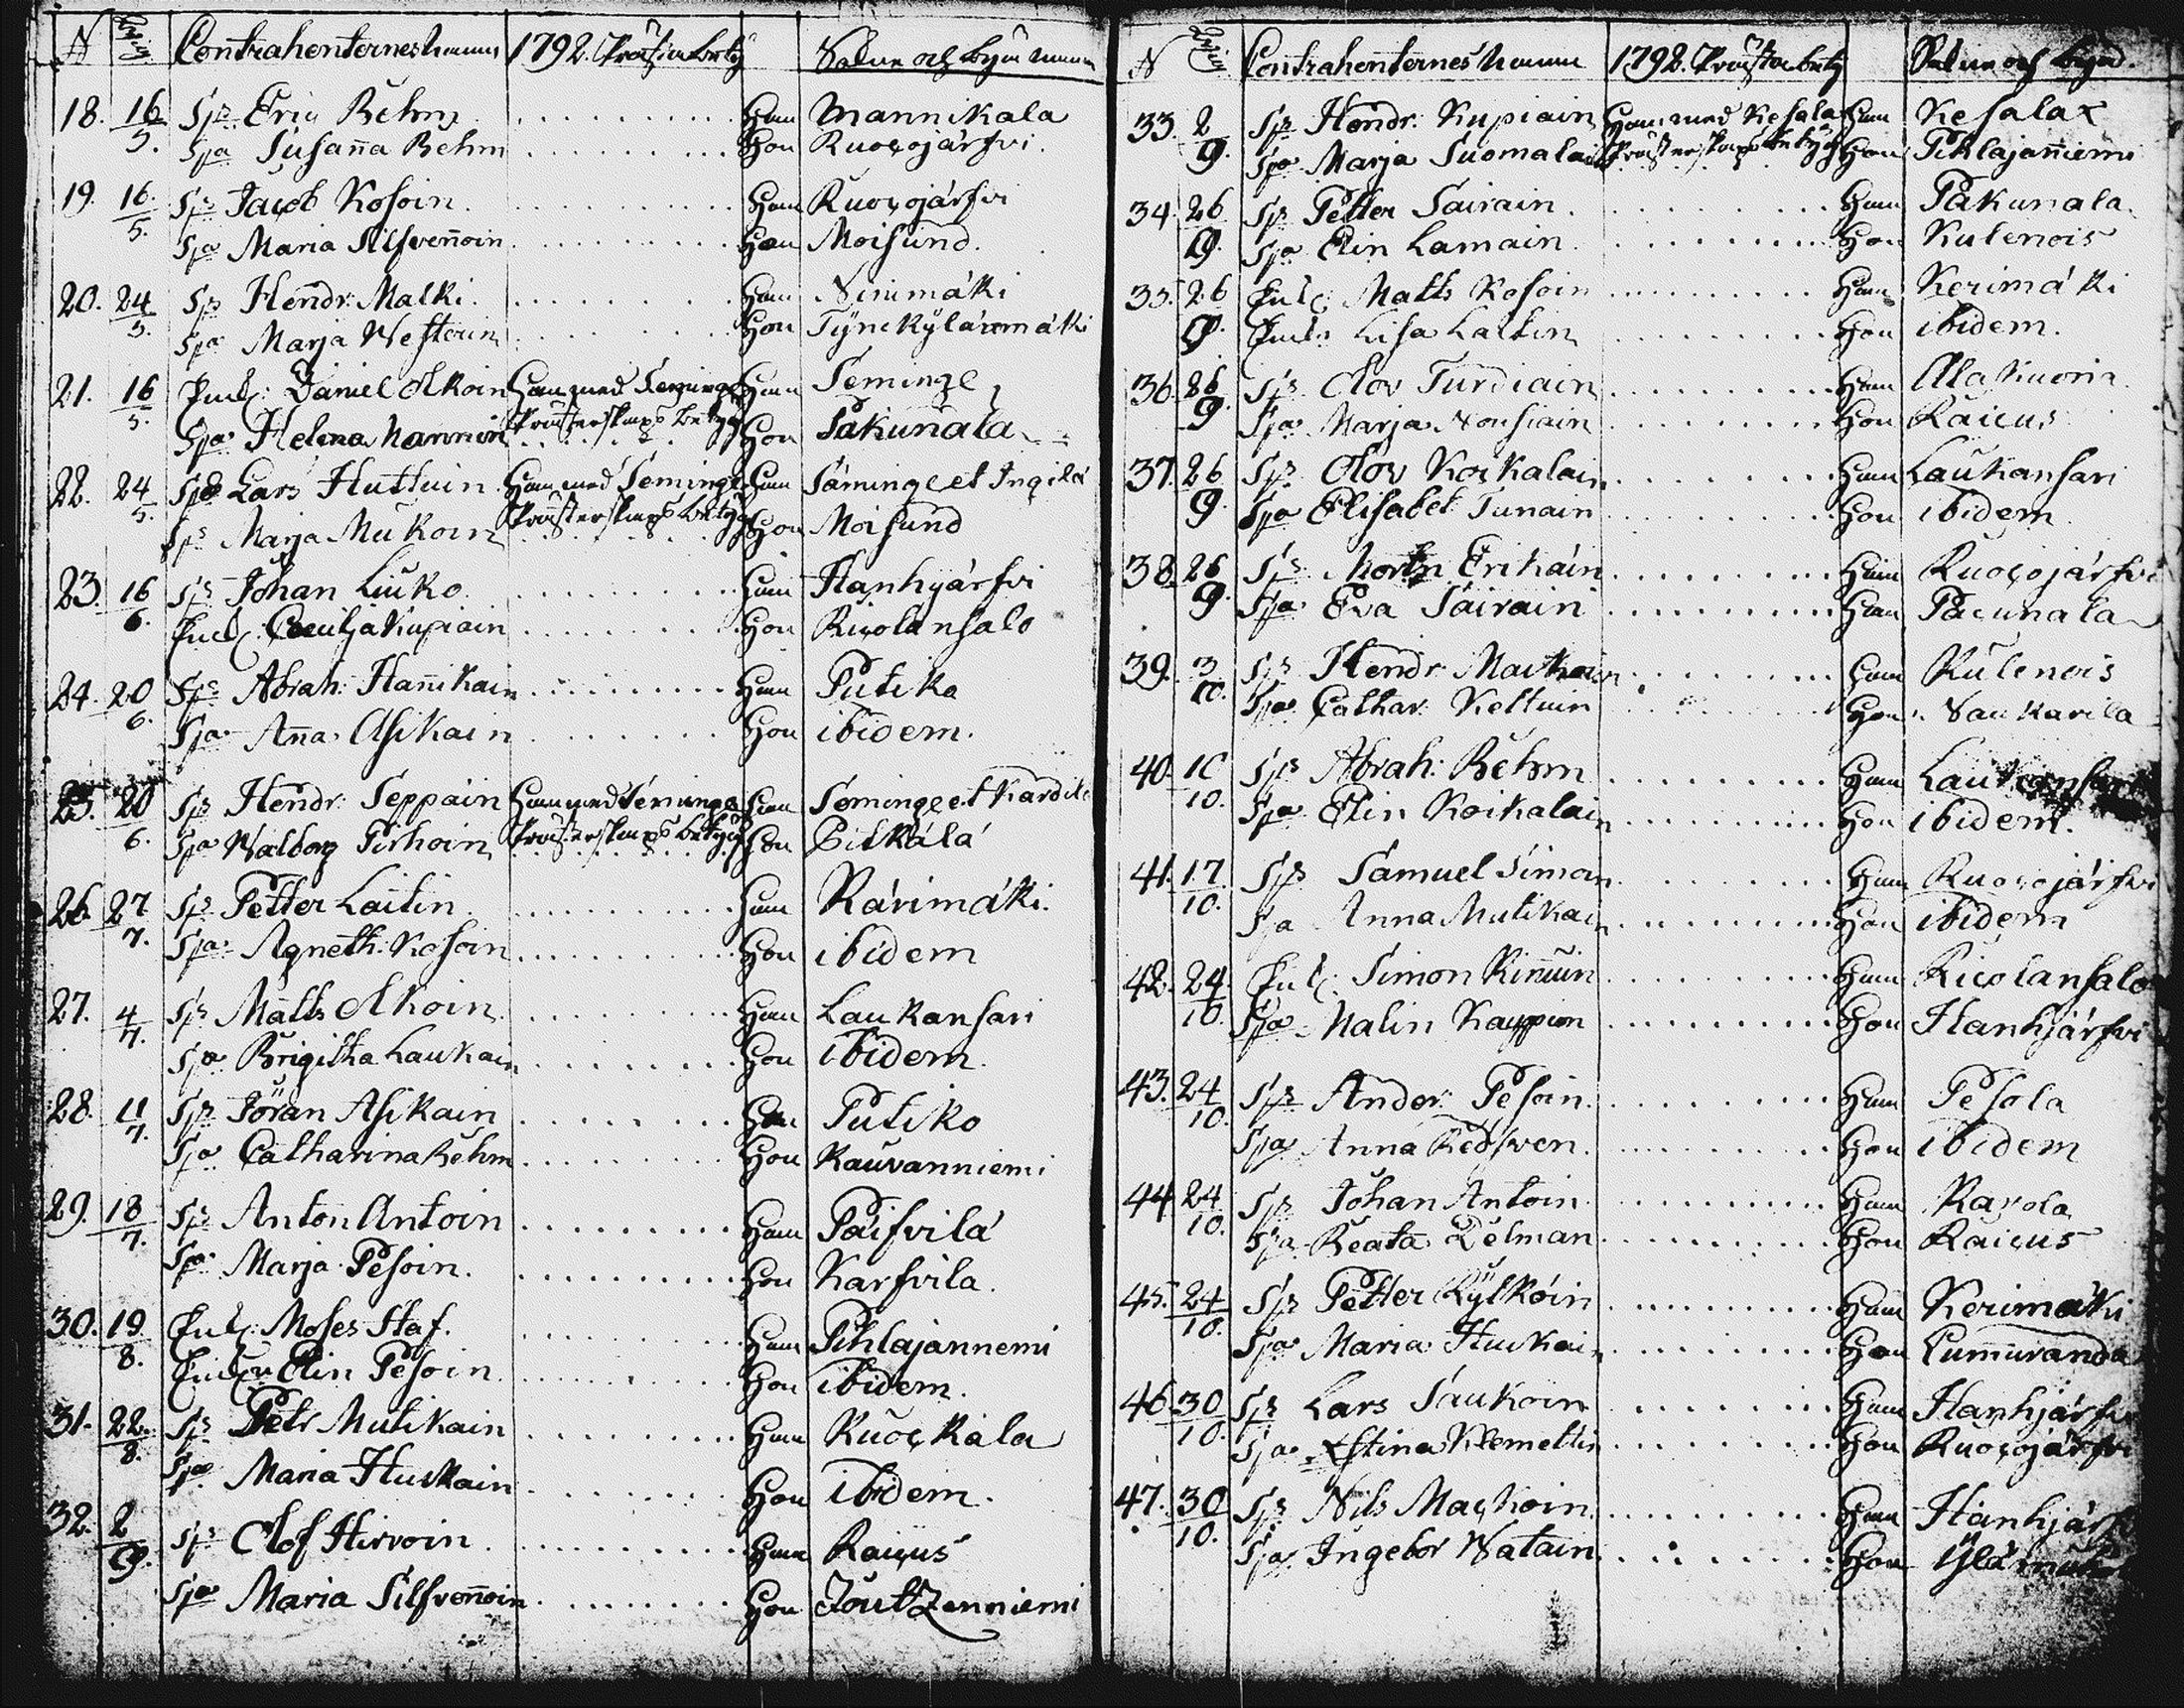 N Contrahenternes Namn 1792. Prästens betyg Sokne och byns namn
18. 16/5. Sps Eric Behm . . . . . Han Mannikala
Spa Susanna Behm . . . . . Hon Ruocojärfvi.
19. 16/5. Sps Jacob Kosoin . . . . . Han Ruocojärfvi
Spa Maria Silfvennoin . . . . . Hon Moisund.
20. 24/5. Sps Hendr: Malki . . . . . Han Ninimäki
Spa Marja Westerin . . . . . Hon
21. 16/5. Enkl: Daniel Alkoin Han med Seminge Han Seminge
Spa Helena Nannin Prästerskaps betyg Hon Pakunala
22. 24/5. Lars Huttuin Han med Seminge Han Säminge et Ingilä
Marja Mukoin Prästerskaps betyg Hon Moisund
23. 16/6. Sps Johan Liuko . . . . . Han Hanhjärfvi
Enkl: Cecilja Kupiain . . . . . Hon Ricolansalo
24. 20/6. Sps Abrah: Hannikain . . . . . Han Putiko
Spa Anna Asikain . . . . . Hon ibidem.
25. 20/6. Sps Hendr: Seppain Han med Seminge Han Seminge et Kardila
Spa Walborg Pirhoin Prästerskaps betyg Hon Pitkälä
26. 27/7. Sps Petter Laitin . . . . . Han Kärimäki.
Spa Agneth: Kosoin . . . . . Hon ibidem
27. 4/7. Sps Matts Alkoin . . . . . Han Laukansari
Spa Brigitta Laukain . . . . . Hon ibidem.
28. 11/7. Sps Jöran Asikain . . . . . Han Putiko
Spa Catharina Behm . . . . . Hon Rauvanniemi
29. 18/7. Sps Anton Antoin . . . . . Han Päifvilä
Spa Marja Pesoin. . . . . . Hon Karfvila.
30. 19/8. Enkl: Moses Staf. . . . . . Han Pihlajannemi
Enk: Elin Pesoin . . . . . Hon ibidem.
31. 22/8. Sps Petr Mutikain . . . . . Han Ruockala
Spa Maria Huskain . . . . . Hon ibidem.
32. 2/9. Sps Olof Hirvoin . . . . . Han Raicus
Spa Maria Silfvennoin . . . . . Hon Joutzenniemi
N Contrahenternes Namn 1792. Prästens betyg Sokne och byns.
33. 2/9. Sps Hendr: Kupiain Han med Kesalax Han Kesalax
Spa Marja Suomalain Prästerskaps betyg Hon Pihlajanniemi
34. 26/9. Sps Petter Sairain . . . . . Han Pakunala
Spa Elin Lamain . . . . . Hon Kulenois
35. 26/9. Enkl: Matts Kosoin . . . . . Han Kerimäki
Enk: Lisa Laitin . . . . . Hon ibidem.
36. 26/9. Sps Olov Turdiain . . . . . Han Alakuona
Spa Marja Nousiain . . . . . Hon Raicus
37. 26/9. Sps Olov Koikalain . . . . . Han Laukansari
Spa Elisabet Tunain . . . . . Hon ibidem
38. 26/9. Sps Mortn Erikäin . . . . . Han Ruocojärfvi
Spa Eva Sairain . . . . . Hon Pacunala
39. 3/10. Sps Hendr: . . . . . Han Kulenois
Spa Cathar: Keltuin . . . . . Hon Naukarila
40. 10/10. Sps Abrah: Behm . . . . . Han Laukansari
Spa Elin Koikalain . . . . . Hon ibidem.
41. 17/10. Sps Samuel Siman . . . . . Han Ruocojärfvi
Spa Anna Mutikain . . . . . Hon ibidem
42. 24/10. Enkl: Simon Rinnuin . . . . . Han Ricolansalo
Spa Malin Kauppin . . . . . Hon Hanhjärfvi
43. 24/10. Sps Ander: Pesoin . . . . . Han Pesola
Spa Anna Redsven . . . . . Hon ibidem
44. 24/10. Sps Johan Antoin . . . . . Han Ravola
Spa Beata Delman . . . . . Hon Raicus
45. 24/10. Sps Petter Rylköin . . . . . Han Kerimäki
Spa Maria Huskain . . . . . Hon Lummiranda
46. 30/10. Sps Lars Saukoin . . . . . Han Hanhjärfvi
Spa Xstina Klemettin . . . . . Hon Ruocojärfvi
47. 30/10. Sps Nils Mackoin . . . . . Han Hanhjärf
Spa Ingebor Watain . . . . . Hon